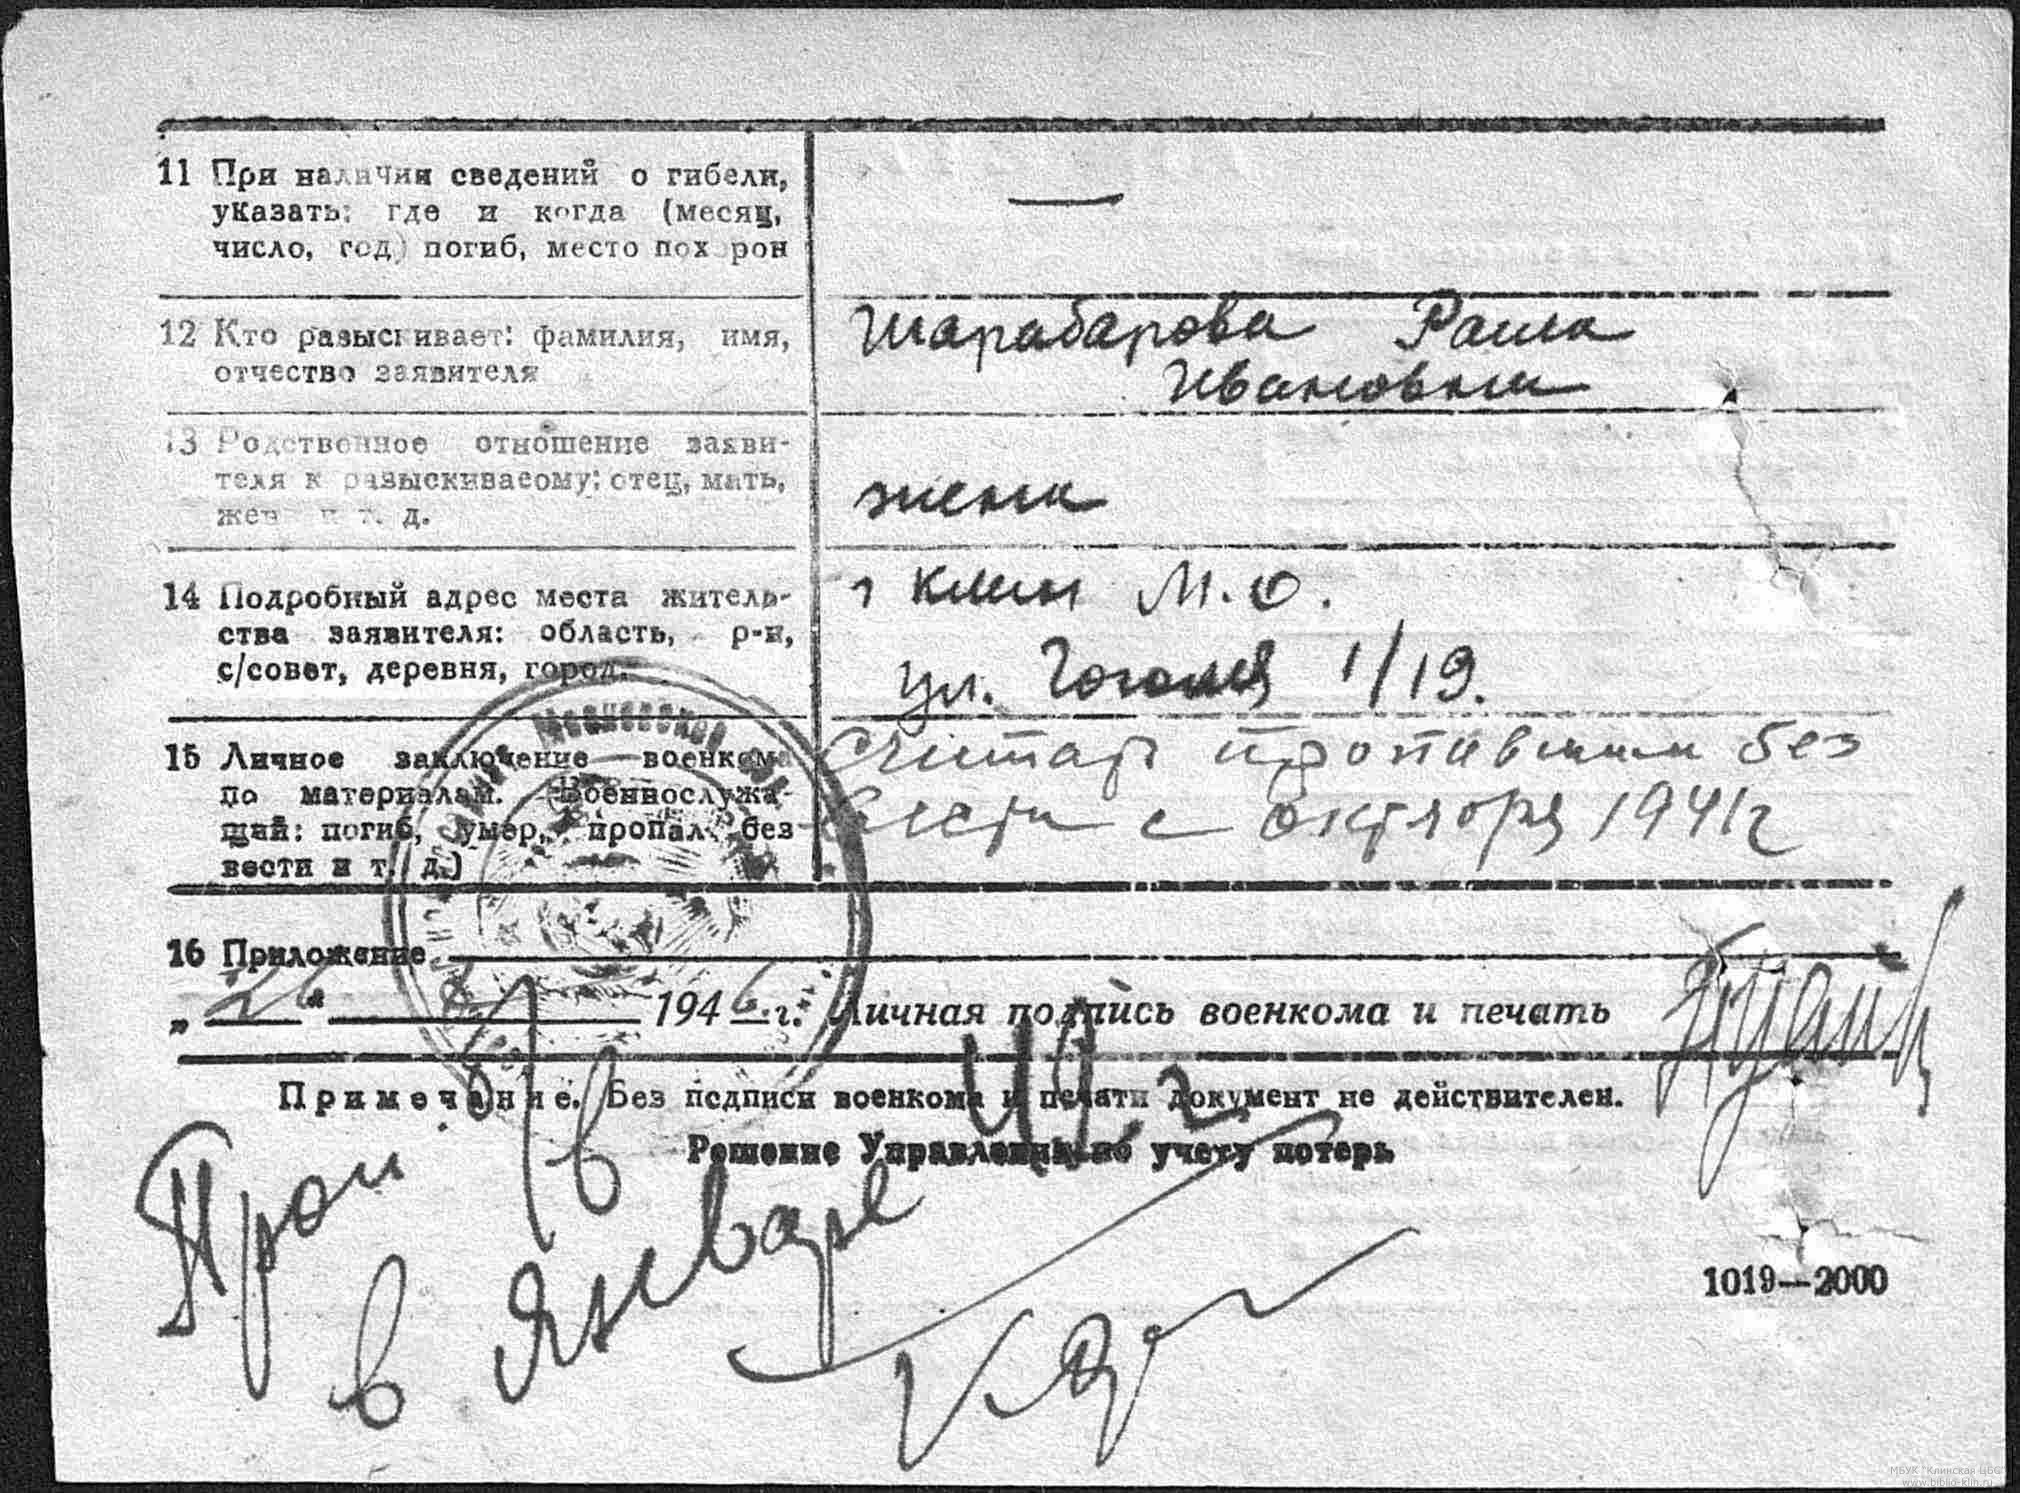 11 При наличии сведений о гибели,
указать: где и когда (месяц,
число, год) погиб, место похорон
—
12 Кто разыскивает: фамилия, имя,
отчество заявителя
Шарабарова Раиса
Ивановна
13 Родственное отношение заяви-
теля к разыскиваемому: отец, мать,
жена и т. д.
жена
14 Подробный адрес места житель-
ства заявителя: область, р-н,
с/совет, деревня, город.
г Клин М.О.
ул. Гоголя 1/19.
15 Личное заключение военкома
по материалам. (Военнослужа-
щий: погиб, умер, пропал без
вести и т. д.)
Считать пропавшим без
вести с октября 1941г
16 Приложение
„26“ 1946 г. Личная подпись военкома и печать
Примечание. Без подписи военкома и печати документ не действителен.
Решение Управления по учету потерь
Проп. б/в
в январе 42 г
1019—2000
МБУК "Клинская ЦБС"
www.biblio-klin.ru